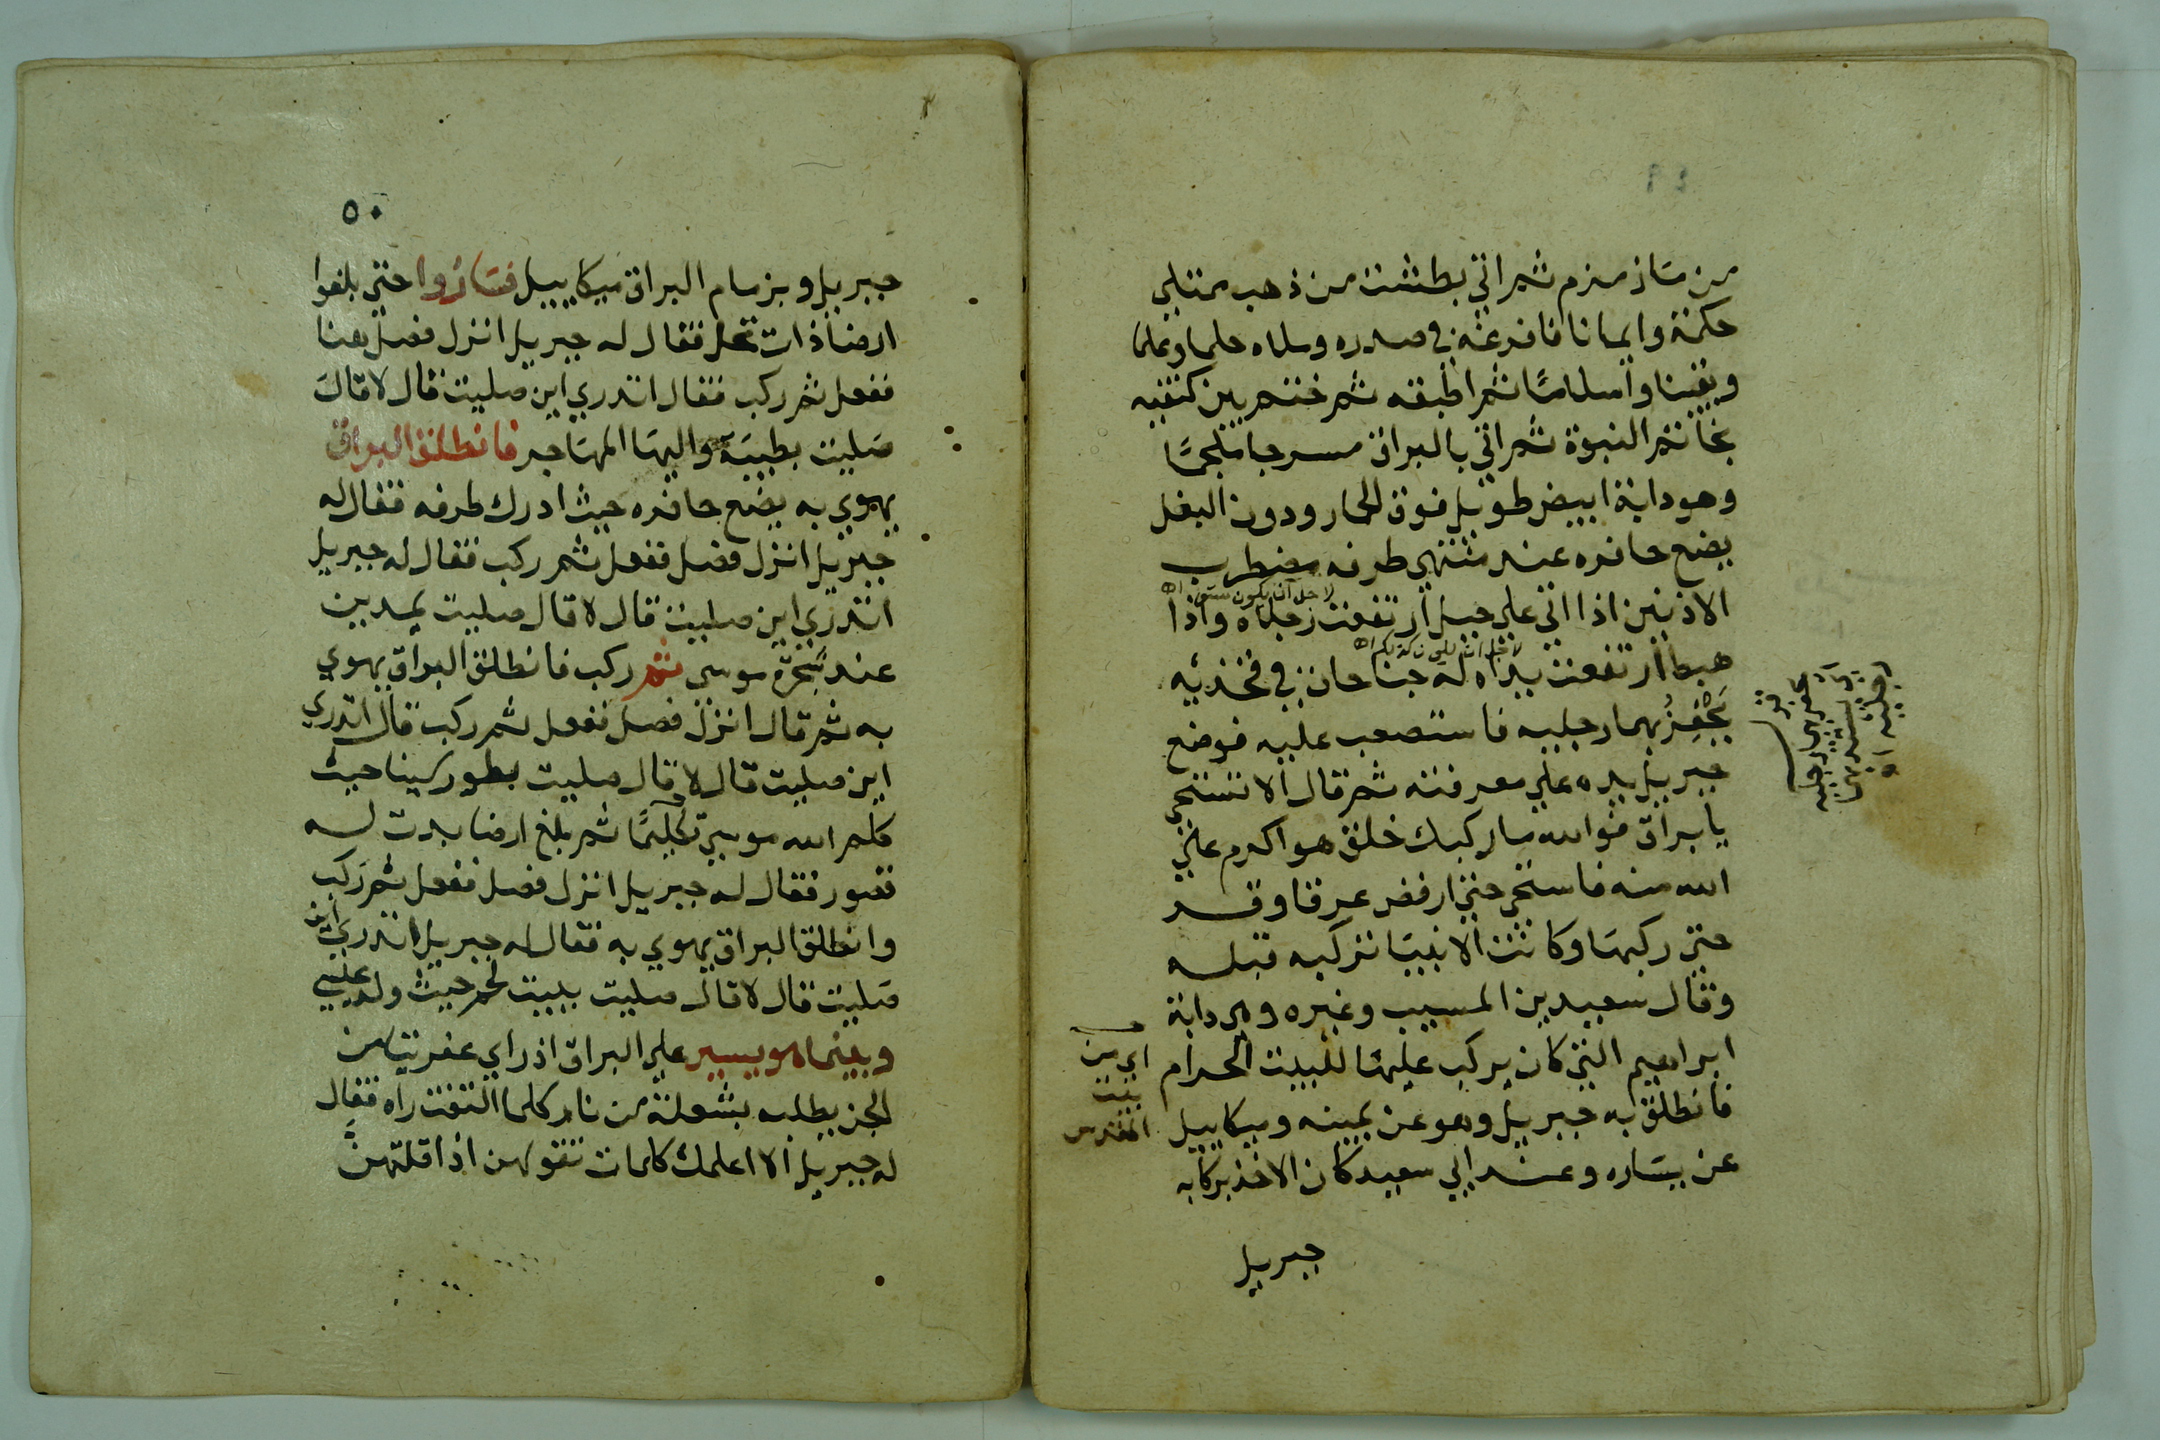 ٤٩
من ماء زمزم ثم اتي بطشت من ذهب ممتلي
حكمة وايمانا فافرغه في صدره وملاه حلما وعلما
ويقينا واسلاما ثم اطبقه ثم ختم بين كتفيه
بخاتم النبوة ثم اتي بالبراق مسرجا ملجما
وهو دابة ابيض طويل فوق الحمار ودون البغل
يضع حافره عند منتهي طرفه مضطرب
الاذنين اذا اتي علي جبل ارتفعت رجلاه واذا
لاجل ان يكون مستوي اه
هبط ارتفعت يداه له جناحان في فخذيه
يحفز بهما رجليه فاستصعب عليه فوضع
جبريل يده علي معرفته ثم قال الا تستحي
يا براق فوالله ما ركبك خلق هو اكرم علي
الله منه فاستحي حتي ارفض عرقا وقر
حتي ركبها وكانت الانبيا تركبه قبله
وقال سعيد بن المسيب وغيره وهي دابة
ابراهيم التي كان يركب عليها للبيت الحرام
اي من
بيت
المقدس
فانطلق به جبريل وهو عن يمينه وميكاييل
عن يساره وعند ابي سعيد كان الاخذ بركابه
جبريل
٥٠
جبريل وبزمام البراق ميكاييل فساروا حتي بلغوا
ارضا ذات نخل فقال له جبريل انزل فصل هنا
ففعل ثم ركب فقال اتدري اين صليت قال لا قال
صليت بطيبة واليها المهاجر فانطلق البراق
يهوي به يضع حافره حيث ادرك طرفه فقال له
جبريل انزل فصل ففعل ثم ركب فقال له جبريل
اتدري اين صليت قال لا قال صليت بمدين
عند شجرة موسى ثم ركب فانطلق البراق يهوي
به ثم قال انزل فصل ففعل ثم ركب قال اتدري
اين صليت قال لا قال صليت بطور سينا حيث
كلم الله موسي تكليما ثم بلغ ارضا بدت له
قصور فقال له جبريل انزل فصل ففعل ثم ركب
وانطلق البراق يهوي به فقال له جبريل اتدري اين
صليت قال لا قال صليت ببيت لحم حيث ولد عيسي
وبينما هو يسير علي البراق اذ راي عفريتا من
الجن يطلبه بشعلة من نار كلما التفت راه فقال
له جبريل الا اعلمك كلمات تقولهن اذا قلتهن